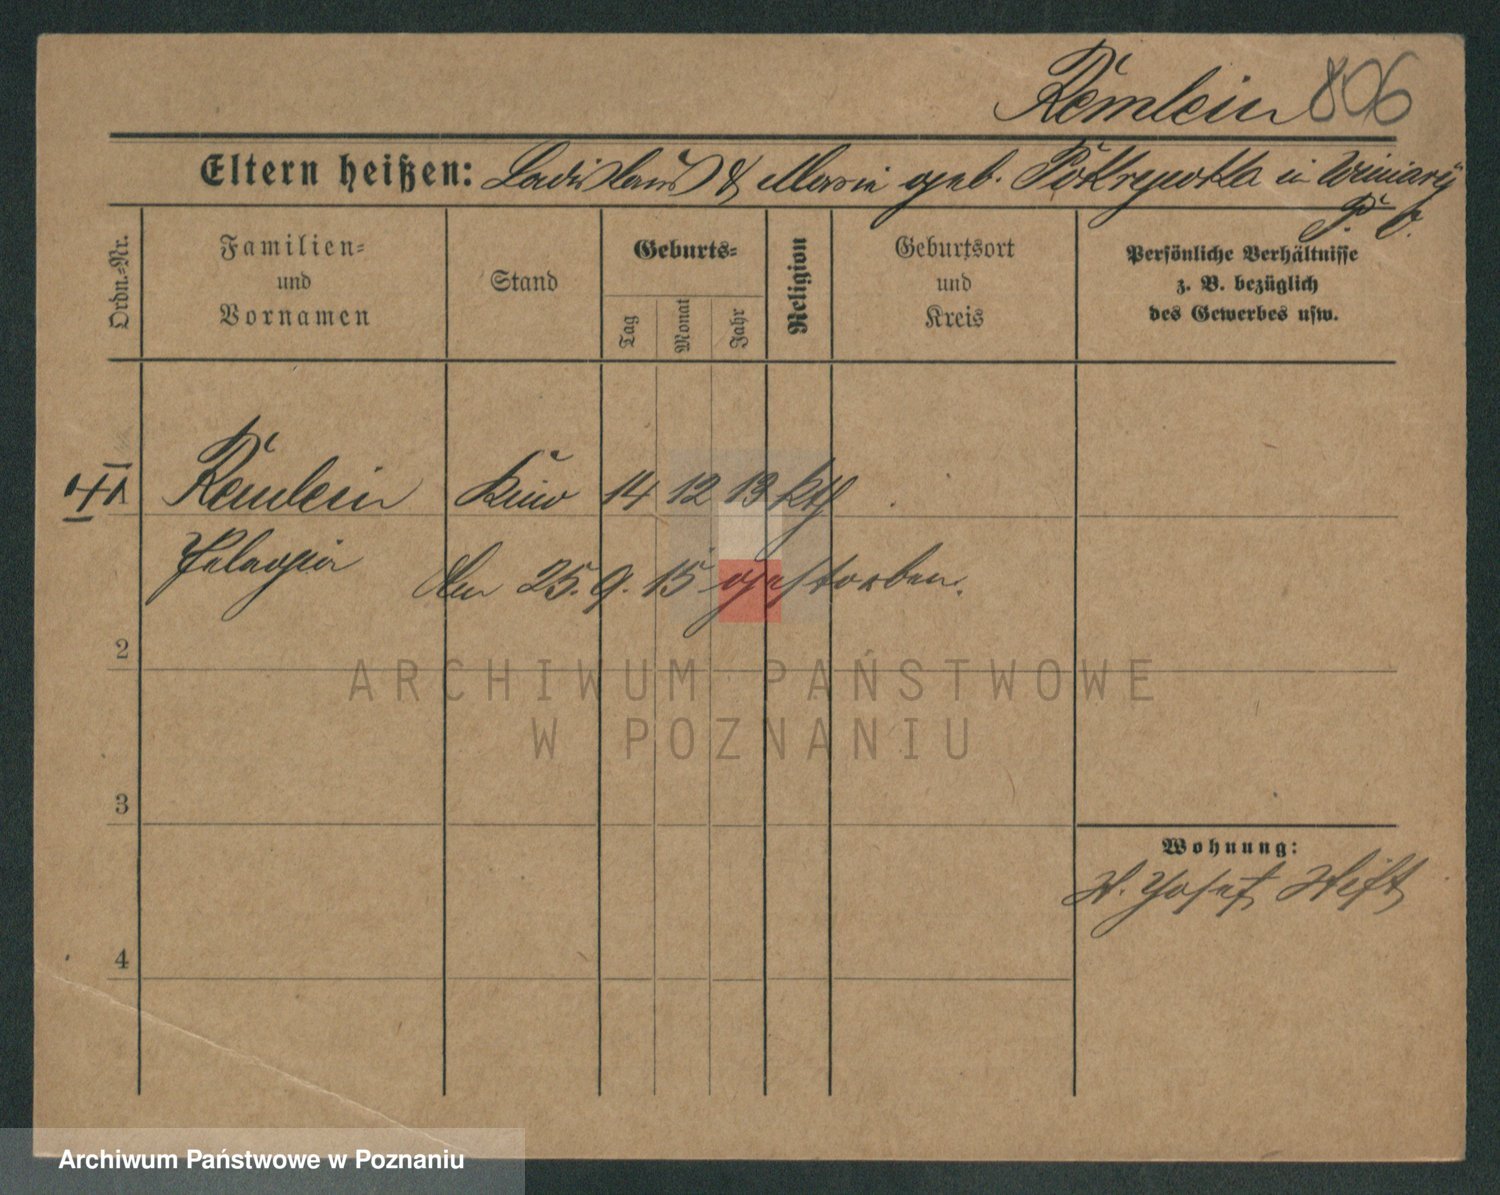 Remlein 806
Eltern heißen: Ladislaus & Marie geb. Pokrywka in Winiary
P. b.
Ordn.-Nr.
Familien-
und
Vornamen
Stand
Geburts-
Tag
Monat
Jahr
Religion
Geburtsort
und
Kreis
Persönliche Verhältnisse
z. B. bezüglich
des Gewerbes usw.
Remlein 14 12 13 kth
Pelagia den 25. 9. 15 gestorben.
2
ARCHIWUM PAŃSTWOWE
W POZNANIU
3
Wohnung:
St. Josef Stift
4
Archiwum Państwowe w Poznaniu